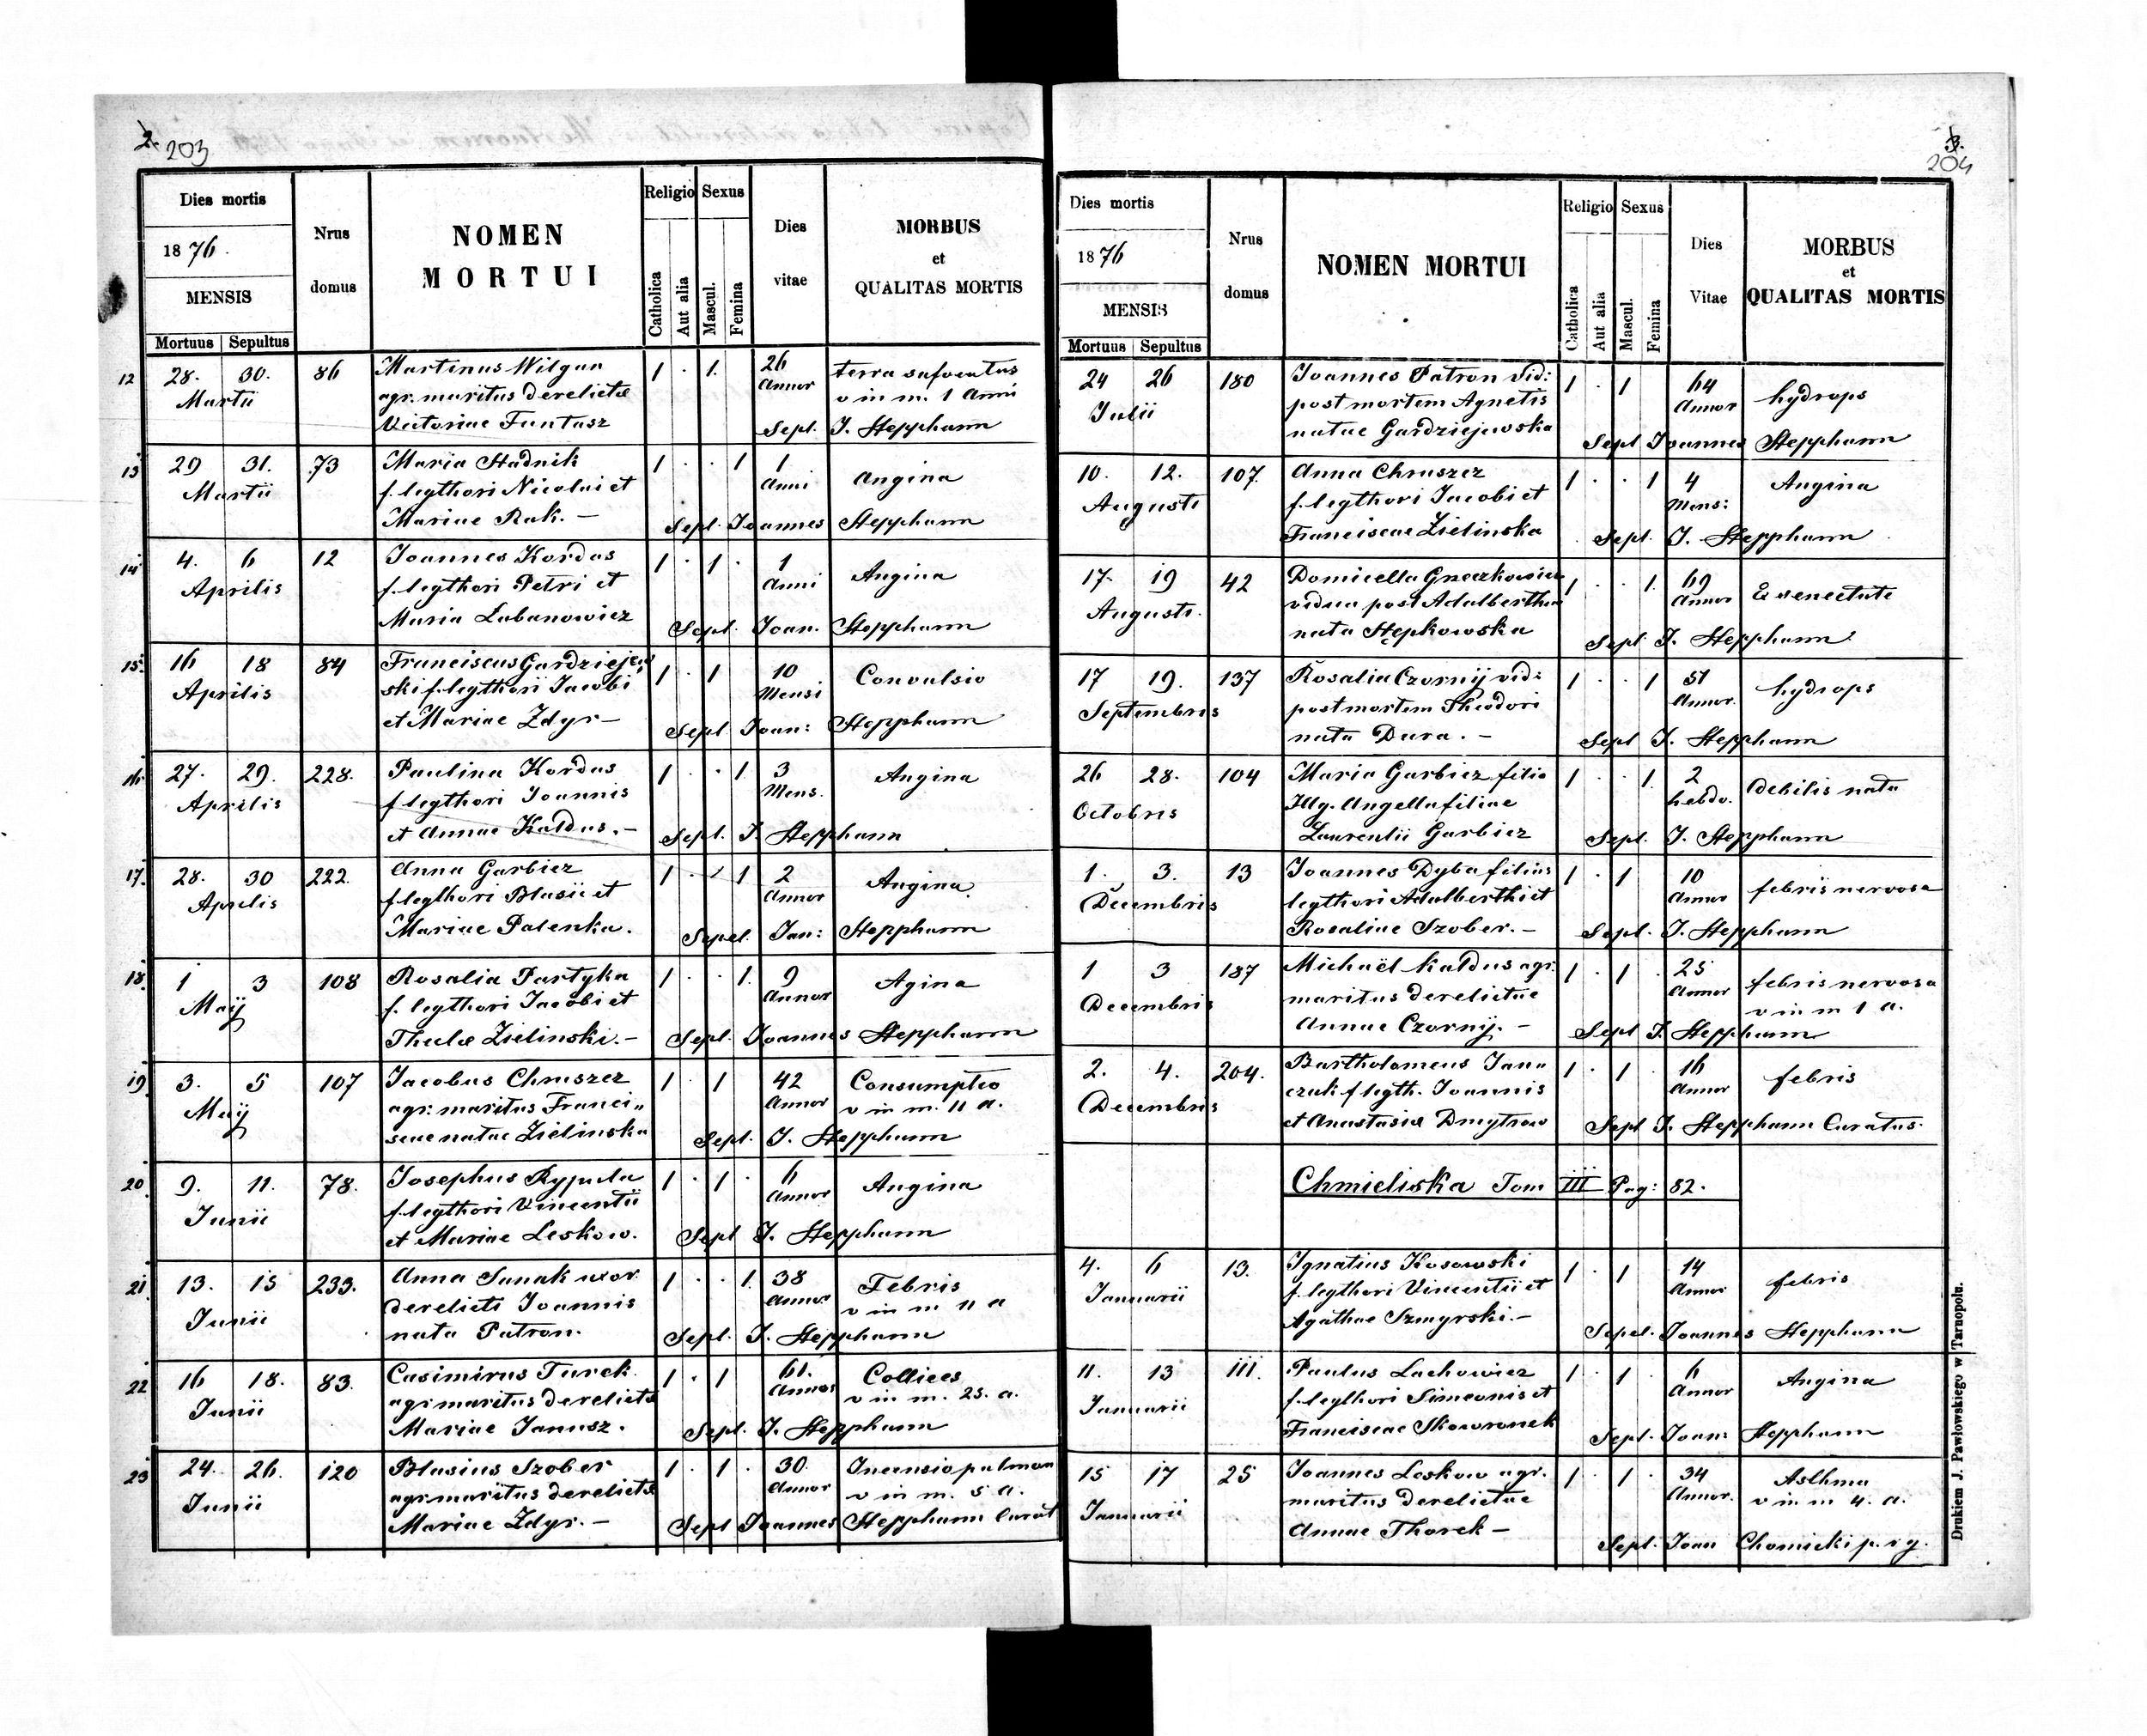 2.
203
Dies mortis
1876.
MENSIS
Mortuus Sepultus
Nrus
domus
NOMEN
MORTUI
Religio
Catholica
Aut alia
Sexus
Mascul.
Femina
Dies
vitae
MORBUS
et
QUALITAS MORTIS
12 28. 30. 86 Martinus Wilgan 1 . 1. 26 terra sufocatus
Martii agr. maritus derelictæ Annor v in m. 1 Anni
Victoriae Funtasz Sept. J. Stepphann
13 29 31. 73 Maria Stadnik 1 . . 1 1 Angina
Martii f. legthori Nicolai et Anni
Mariae Ruk. — Sepl. Joannes Stepphann
14 4. 6 12 Joannes Kordas 1 . 1 . 1 Angina
Aprilis f. legthori Petri et Anni
Maria Labanowicz Sepl. Joan. Stepphann
15. 16 18 84 Franciscus Gardziejew 1 . 1 10 Convulsio
Aprilis ski f. legthori Jacobi Mensi
et Mariae Zdyr — Sepl Joan: Stepphann
16. 27. 29. 228. Paulina Kordas 1 . . 1 3 Angina
Aprilis f legthori Joannis Mens.
et Annae Kaldus. — Sepl. J. Stepphann
17. 28. 30 222. Anna Garbiez 1 . . 1 2 Angina
Aprilis f legthori Blasii et Annor
Mariae Palenka. Sepel. Jan: Stepphann
18. 1 3 108 Rosalia Partyka 1 . . 1. 9 Agina
Maij f. legthori Jacobi et Annor
Theclæ Zielinski. — Sepl. Joannes Stepphann
19 3. 5 107 Jacobus Chruszez 1 . 1 42 Consumptio
Maij agr. maritus Franci„ Annor v in m. 11 a.
scae natae Zielinska Sepl. J. Stepphann
20 9. 11. 78. Josephus Rypula 1 . 1 . 6 Angina
Junii f. legthori Vincentii Annor
et Mariae Leskow. Sepl J. Stepphann
21 13. 15 233. Anna Sanak uxor 1 . . 1. 38 Febris
Junii derelicti Joannis Annor v in m 11 a
nata Patron. Sepl. J. Stepphann
22 16 18. 83. Casimirus Turek 1 . 1 61. Collices
Junii agr maritus derelictæ Annor v in m. 25. a.
Mariae Janusz. Sepl. J. Stepphann
23 24. 26. 120 Blasius Szober 1 . 1 . 30. Incensio pulmon
Junii agr maritus derelictæ Annor v in m. 5 a.
Mariae Zdyr. — Sept Joannes Stepphann Curat
3.
204
Dies mortis
1876
MENSIS
Mortuus Sepultus
Nrus
domus
NOMEN MORTUI
Religio
Catholica
Aut alia
Sexus
Mascul.
Femina
Dies
Vitae
MORBUS
et
QUALITAS MORTIS
24 26 180 Joannes Patron vid: 1 . 1 64 hydrops
Julii post mortem Agnetis Annor
natae Gardziejewska Sepl Joannes Stepphann
10. 12. 107. Anna Chruszez 1 . . 1 4 Angina
Augusti f. legthori Jacobi et Mens:
Franciscae Zielinska Sepl. J. Stepphann
17. 19 42 Domicella Gneczkowicz 1 . . 1. 69 Ex senectute
Augusti. vidua post Adalberthum Annor
nata Stępkowska Sepl J. Stepphann
17 19. 137 Rosalia Czornij vid: 1 . . 1 51 hydrops
Septembris post mortem Theodori Annor.
nata Dura. — Sepl J. Stepphann
26 28. 104 Maria Garbiez filia 1 . . 1. 2 debilis nata
Octobris Illg. Angella filiae hebdo.
Laurentii Garbiez Sepl. J. Stepphann
1. 3. 13 Joannes Dyba filius 1 . 1 10 febris nervosa
Decembris legthori Adalberthi et Annor
Rosaliae Szober. — Sepl. J. Stepphann
1 3 187 Michaël Kaldus agr. 1 . 1 . 25 febris nervosa
Decembris maritus derelictae Annor v in m 1 a.
Annae Czornij. — Sepl J. Stepphann
2. 4. 204. Bartholomeus Jan„ 1 . 1 . 16 febris
Decembris czuk f legth. Joannis Annor
et Anastasiæ Dmytrow Sepl J. Stepphann Curatus.
Chmieliska Tom III Pag: 82.
4. 6 13. Ignatius Kosowski 1 . 1 14 febris
Januarii f. legthori Vincentii et Annor
Agathae Szmyrski. — Sepel. Joannes Stepphann
11. 13 111. Paulus Lachowicz 1 . 1 6 Angina
Januarii f. legthori Simeonis et Annor
Franciscae Skowronek Sepl. Joan: Stepphann
15 17 25 Joannes Leskow agr. 1 . 1 . 34 Asthma
Januarii maritus derelictae Annor. v in m 4. a.
Annae Thorek — Sepl. Joan Chomicki p. r g.
Drukiem J. Pawłowskiego w Tarnopolu.